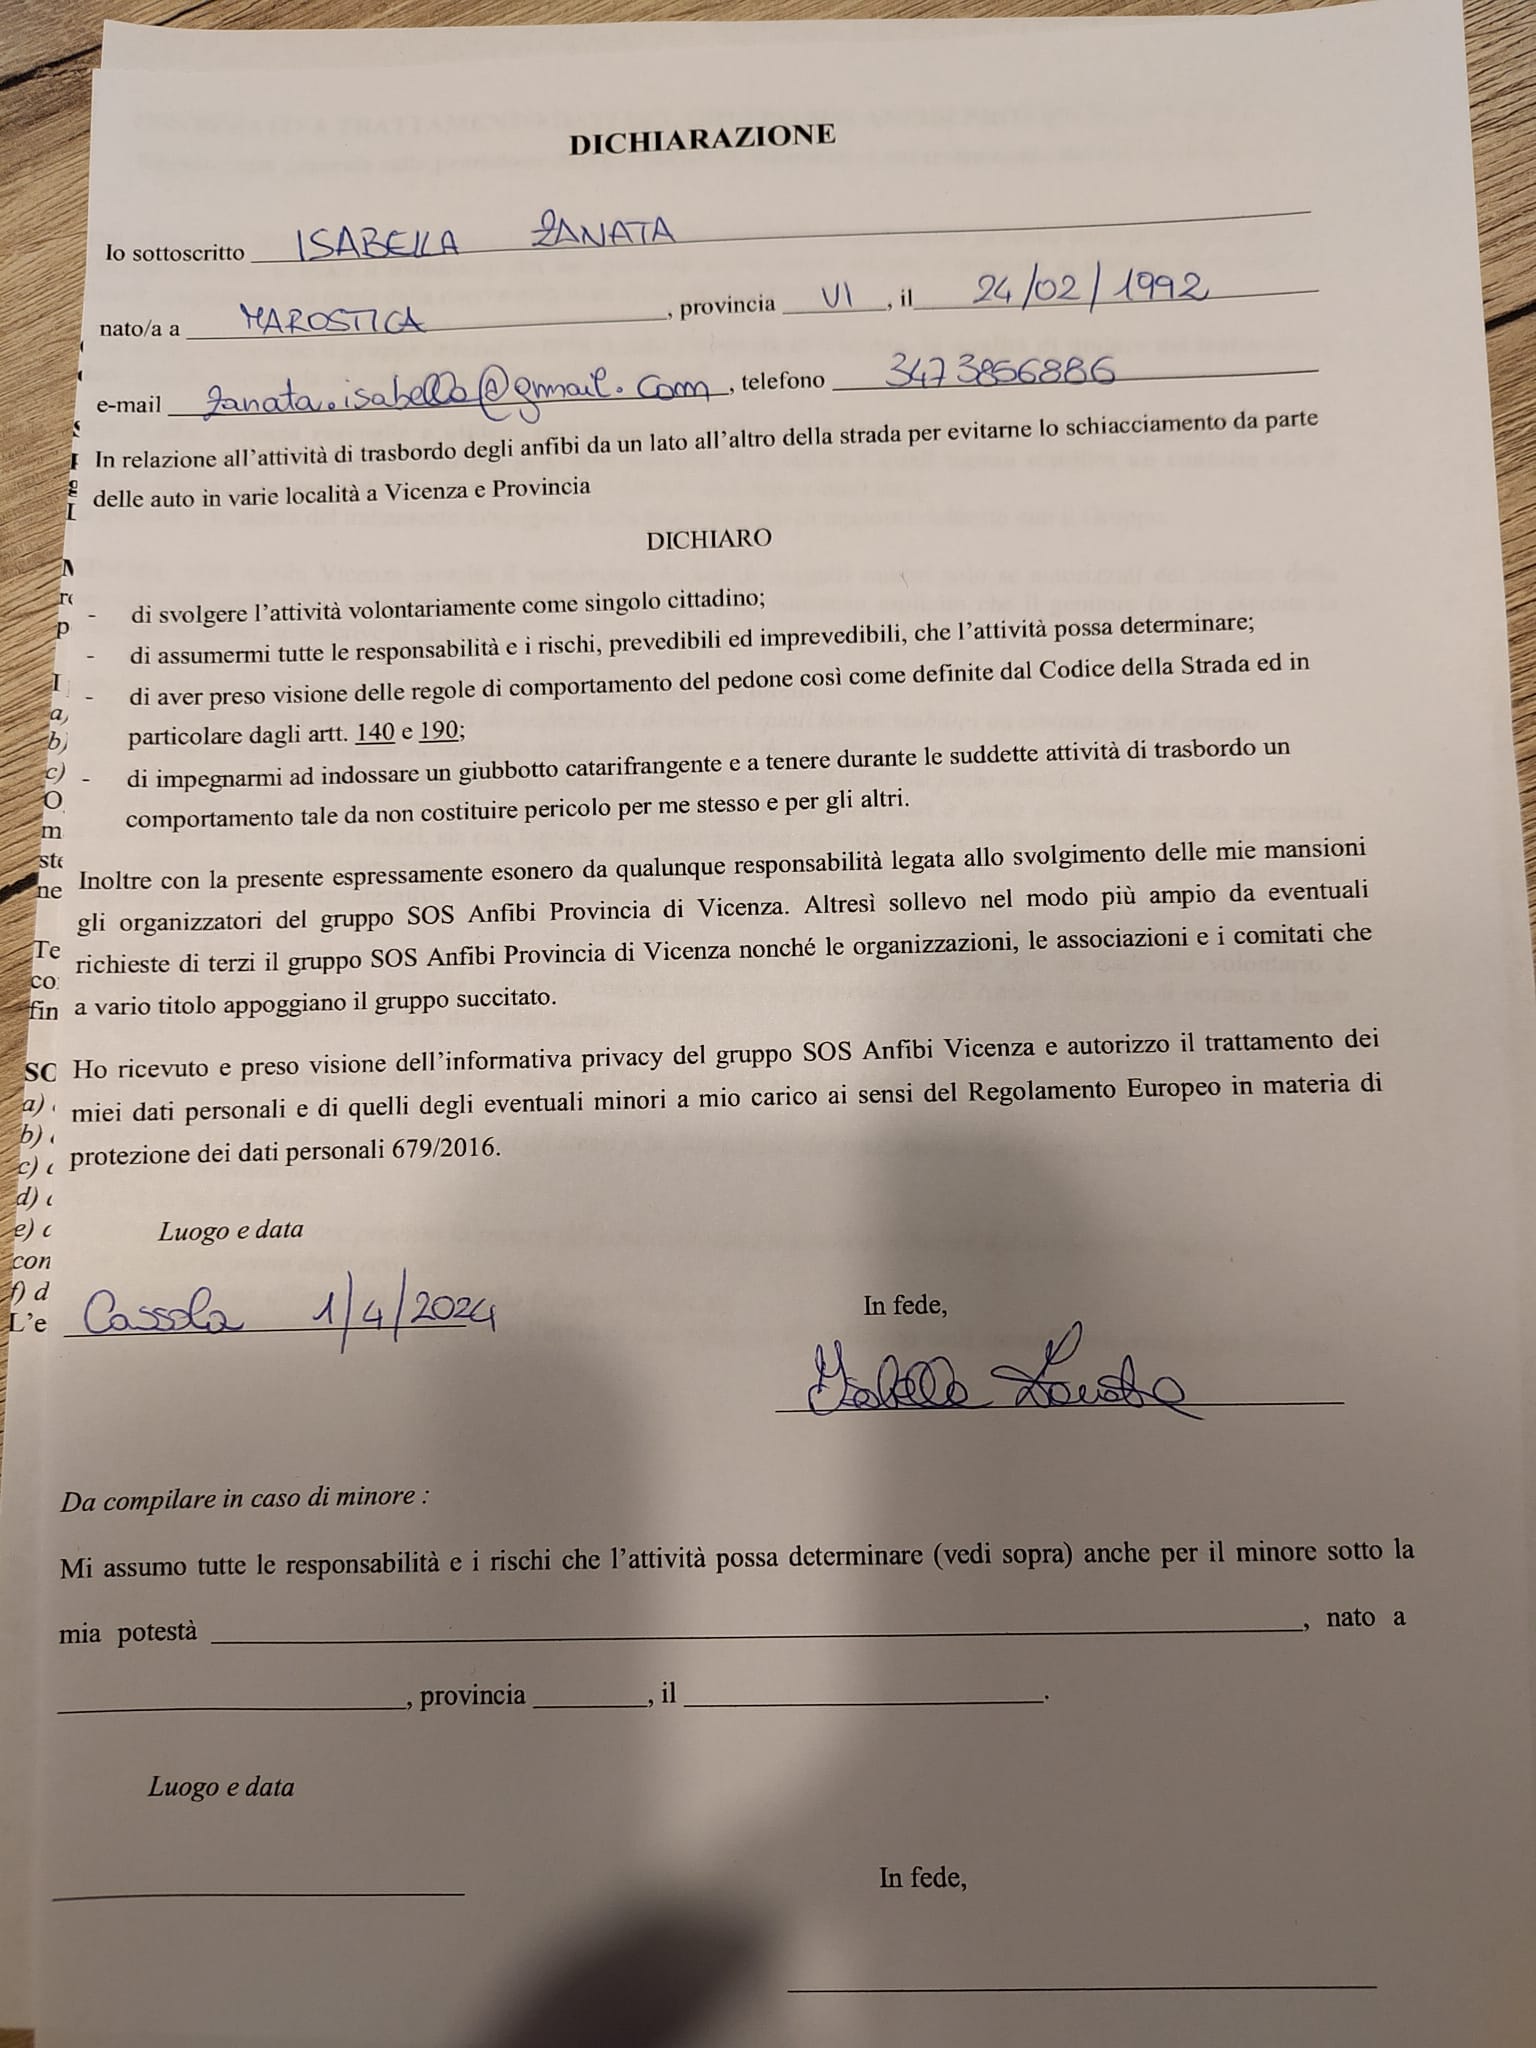 DICHIARAZIONE
Io sottoscritto ISABELLA ZANATA
nato/a a MAROSTICA, provincia VI, il 24/02/1992
e-mail zanata.isabella@gmail.com, telefono 3473856886
In relazione all'attività di trasbordo degli anfibi da un lato all'altro della strada per evitarne lo schiacciamento da parte
delle auto in varie località a Vicenza e Provincia
DICHIARO
- di svolgere l'attività volontariamente come singolo cittadino;
- di assumermi tutte le responsabilità e i rischi, prevedibili ed imprevedibili, che l'attività possa determinare;
- di aver preso visione delle regole di comportamento del pedone così come definite dal Codice della Strada ed in
particolare dagli artt. 140 e 190;
- di impegnarmi ad indossare un giubbotto catarifrangente e a tenere durante le suddette attività di trasbordo un
comportamento tale da non costituire pericolo per me stesso e per gli altri.
Inoltre con la presente espressamente esonero da qualunque responsabilità legata allo svolgimento delle mie mansioni
gli organizzatori del gruppo SOS Anfibi Provincia di Vicenza. Altresì sollevo nel modo più ampio da eventuali
richieste di terzi il gruppo SOS Anfibi Provincia di Vicenza nonché le organizzazioni, le associazioni e i comitati che
a vario titolo appoggiano il gruppo succitato.
Ho ricevuto e preso visione dell'informativa privacy del gruppo SOS Anfibi Vicenza e autorizzo il trattamento dei
miei dati personali e di quelli degli eventuali minori a mio carico ai sensi del Regolamento Europeo in materia di
protezione dei dati personali 679/2016.
Luogo e data
Cassola 1/4/2024
In fede,
Isabella Zanata
Da compilare in caso di minore :
Mi assumo tutte le responsabilità e i rischi che l'attività possa determinare (vedi sopra) anche per il minore sotto la
mia potestà , nato a
, provincia , il .
Luogo e data
In fede,